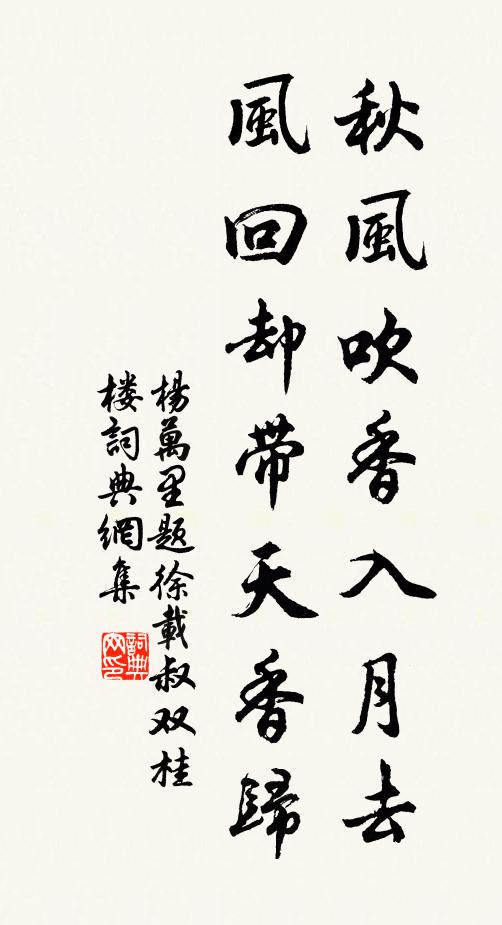 秋風吹香入月去
風回却帶天香歸
楊萬里題徐載叔双桂
楼詞典網集
詞典网印